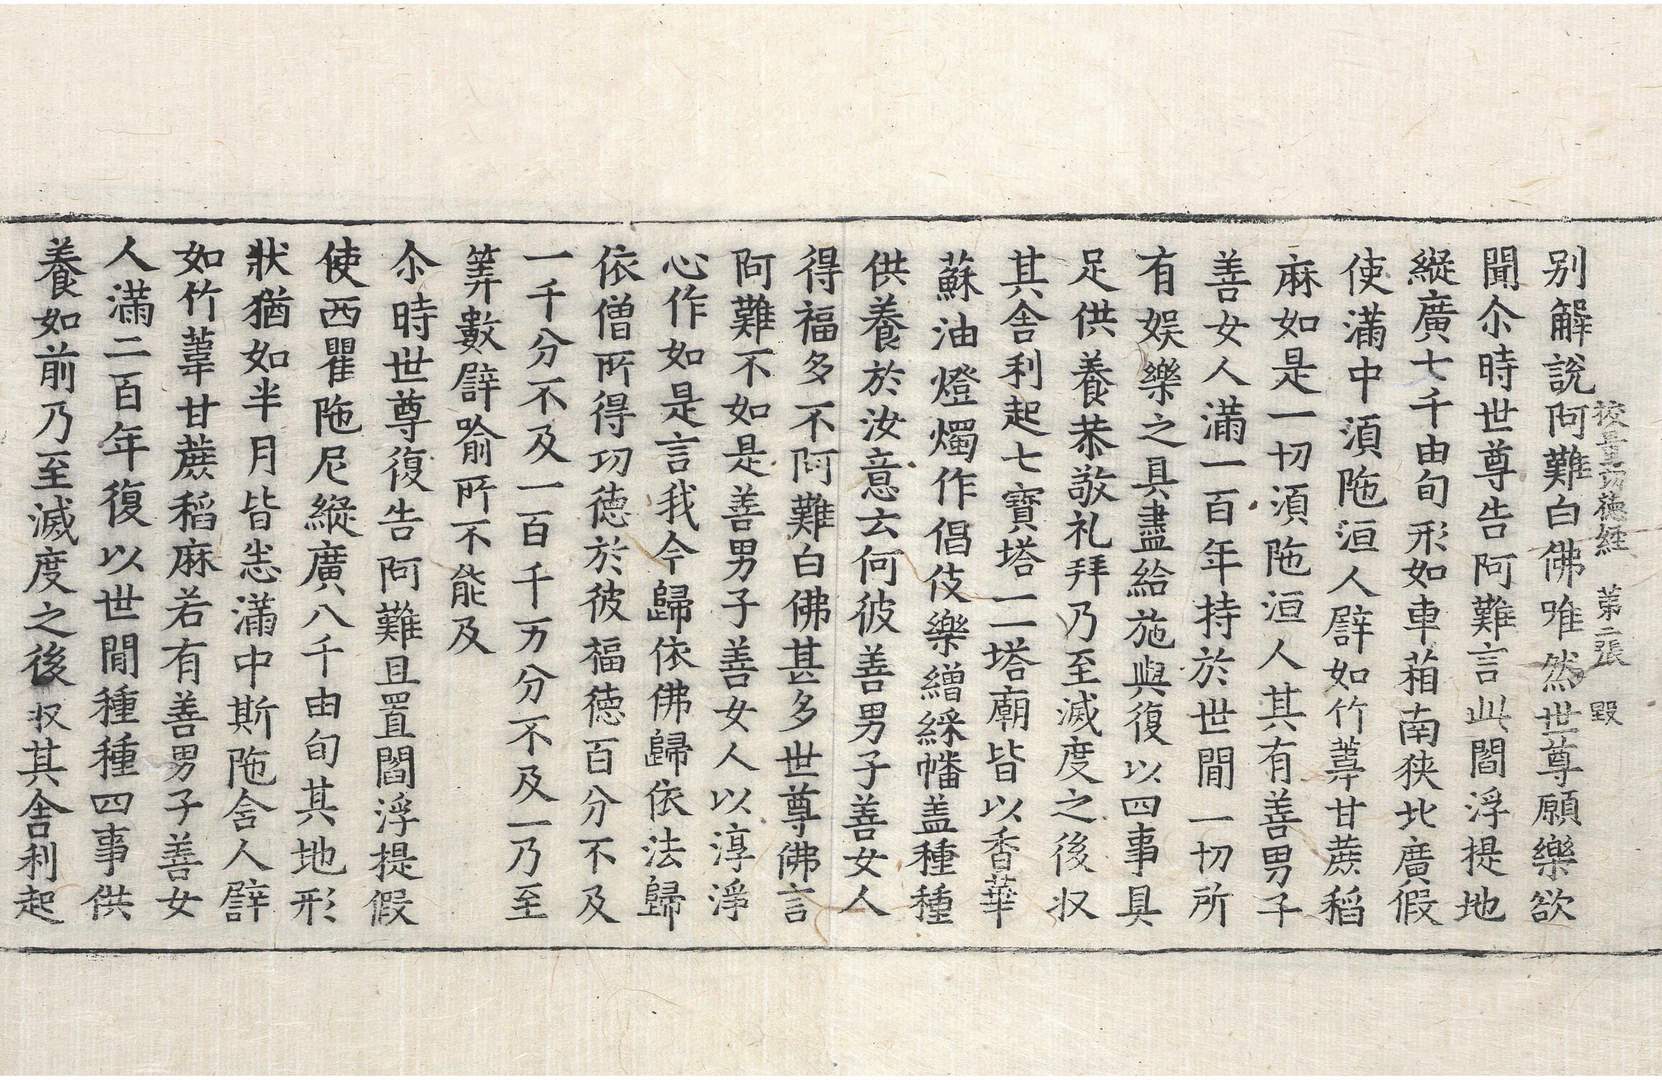 挍量功德經 第二張 毀
別解說阿難白佛唯然世尊願樂欲
聞尒時世尊告阿難言此閻浮提地
縱廣七千由旬形如車葙南狹北廣假
使滿中須陁洹人譬如竹䓽甘蔗稻
麻如是一切須陁洹人其有善男子
善女人滿一百年持於世間一切所
有娛樂之具盡給施與復以四事具
足供養恭敬礼拜乃至滅度之後収
其舍利起七寶塔一一塔廟皆以香華
蘇油燈燭作倡伎樂繒綵幡盖種種
供養於汝意云何彼善男子善女人
得福多不阿難白佛甚多世尊佛言
阿難不如是善男子善女人以淳淨
心作如是言我今歸依佛歸依法歸
依僧所得功德於彼福德百分不及
一千分不及一百千万分不及一乃至
筭數譬喻所不能及
尒時世尊復告阿難且置閻浮提假
使西瞿陁尼縱廣八千由旬其地形
狀猶如半月皆悉滿中斯陁含人譬
如竹葦甘蔗稻麻若有善男子善女
人滿二百年復以世間種種四事供
養如前乃至滅度之後収其舍利起